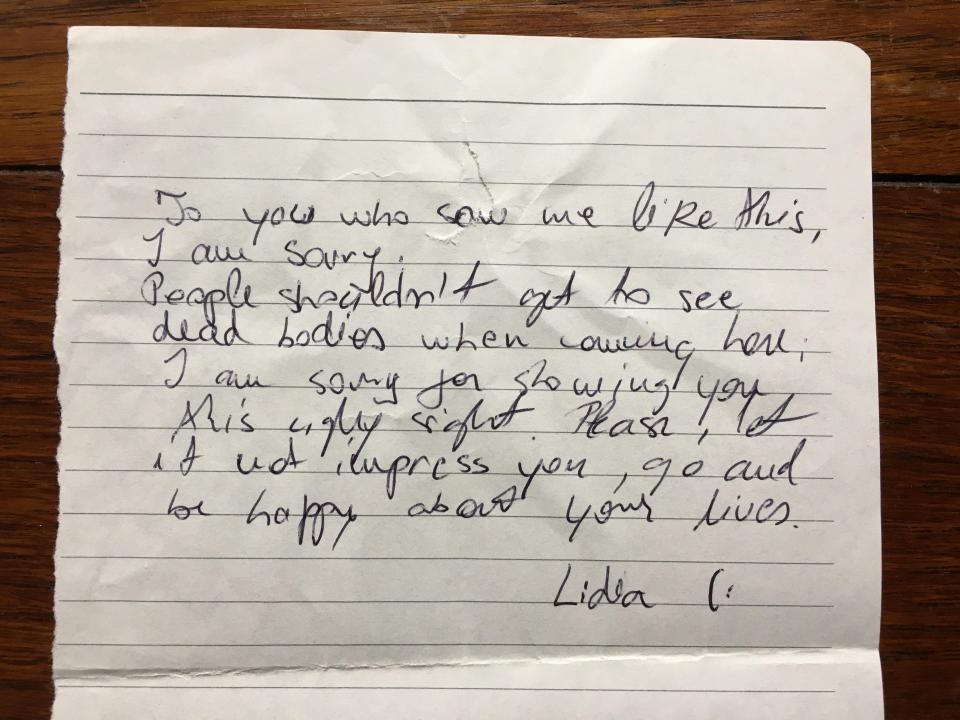 To you who saw me like this,
I am sorry.
People shouldn't get to see
dead bodies when coming here.
I am sorry for showing you
this ugly sight. Please, let
it not impress you, go and
be happy about your lives.
Lidia (: